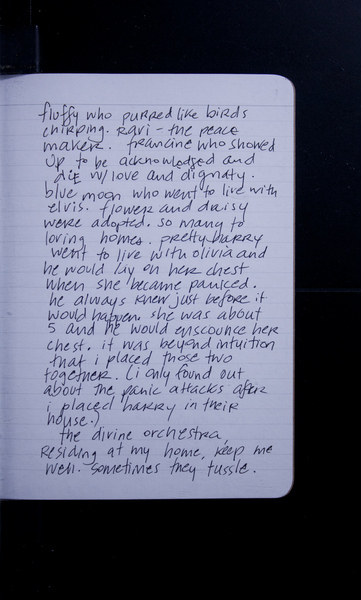 fluffy who purred like birds
chirping. ravi - the peace
maker. francine who showed
up to be acknowledged and
die w/ love and dignaty.
blue moon who went to live with
elvis. flower and daisy
were adopted. so many to
loving homes. pretty harry
went to live with olivia and
he would lay on her chest
when she became paniced.
he always knew just before it
would happen. she was about
5 and he would enscounce her
chest. it was beyond intuition
that i placed those two
together. (i only found out
about the panic attacks after
i placed harry in their
house.)
the divine orchestra,
residing at my home, keep me
well. sometimes they tussle.